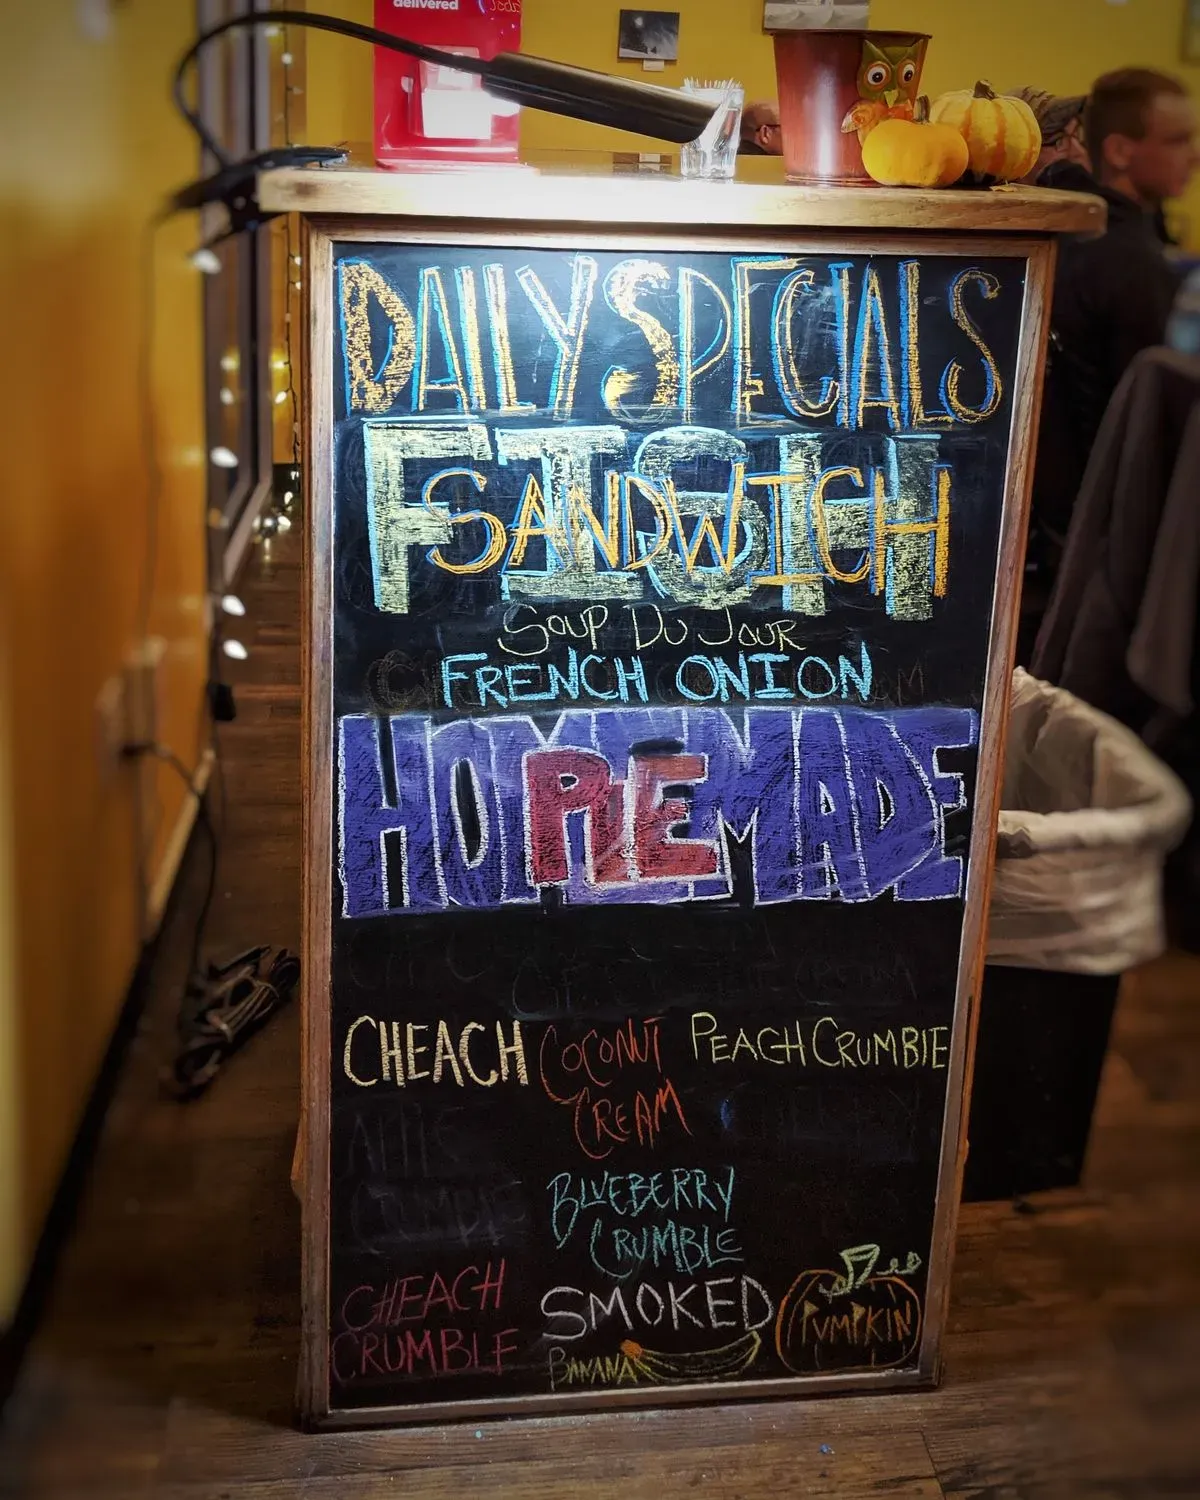 delivered
DAILY SPECIALS
FISH
SANDWICH
SOUP DU JOUR
FRENCH ONION
HOMEMADE
PIE
CHEACH
COCONUT
CREAM
PEACH CRUMBLE
BLUEBERRY
CRUMBLE
CHEACH
CRUMBLE
SMOKED
BANANA
PUMPKIN